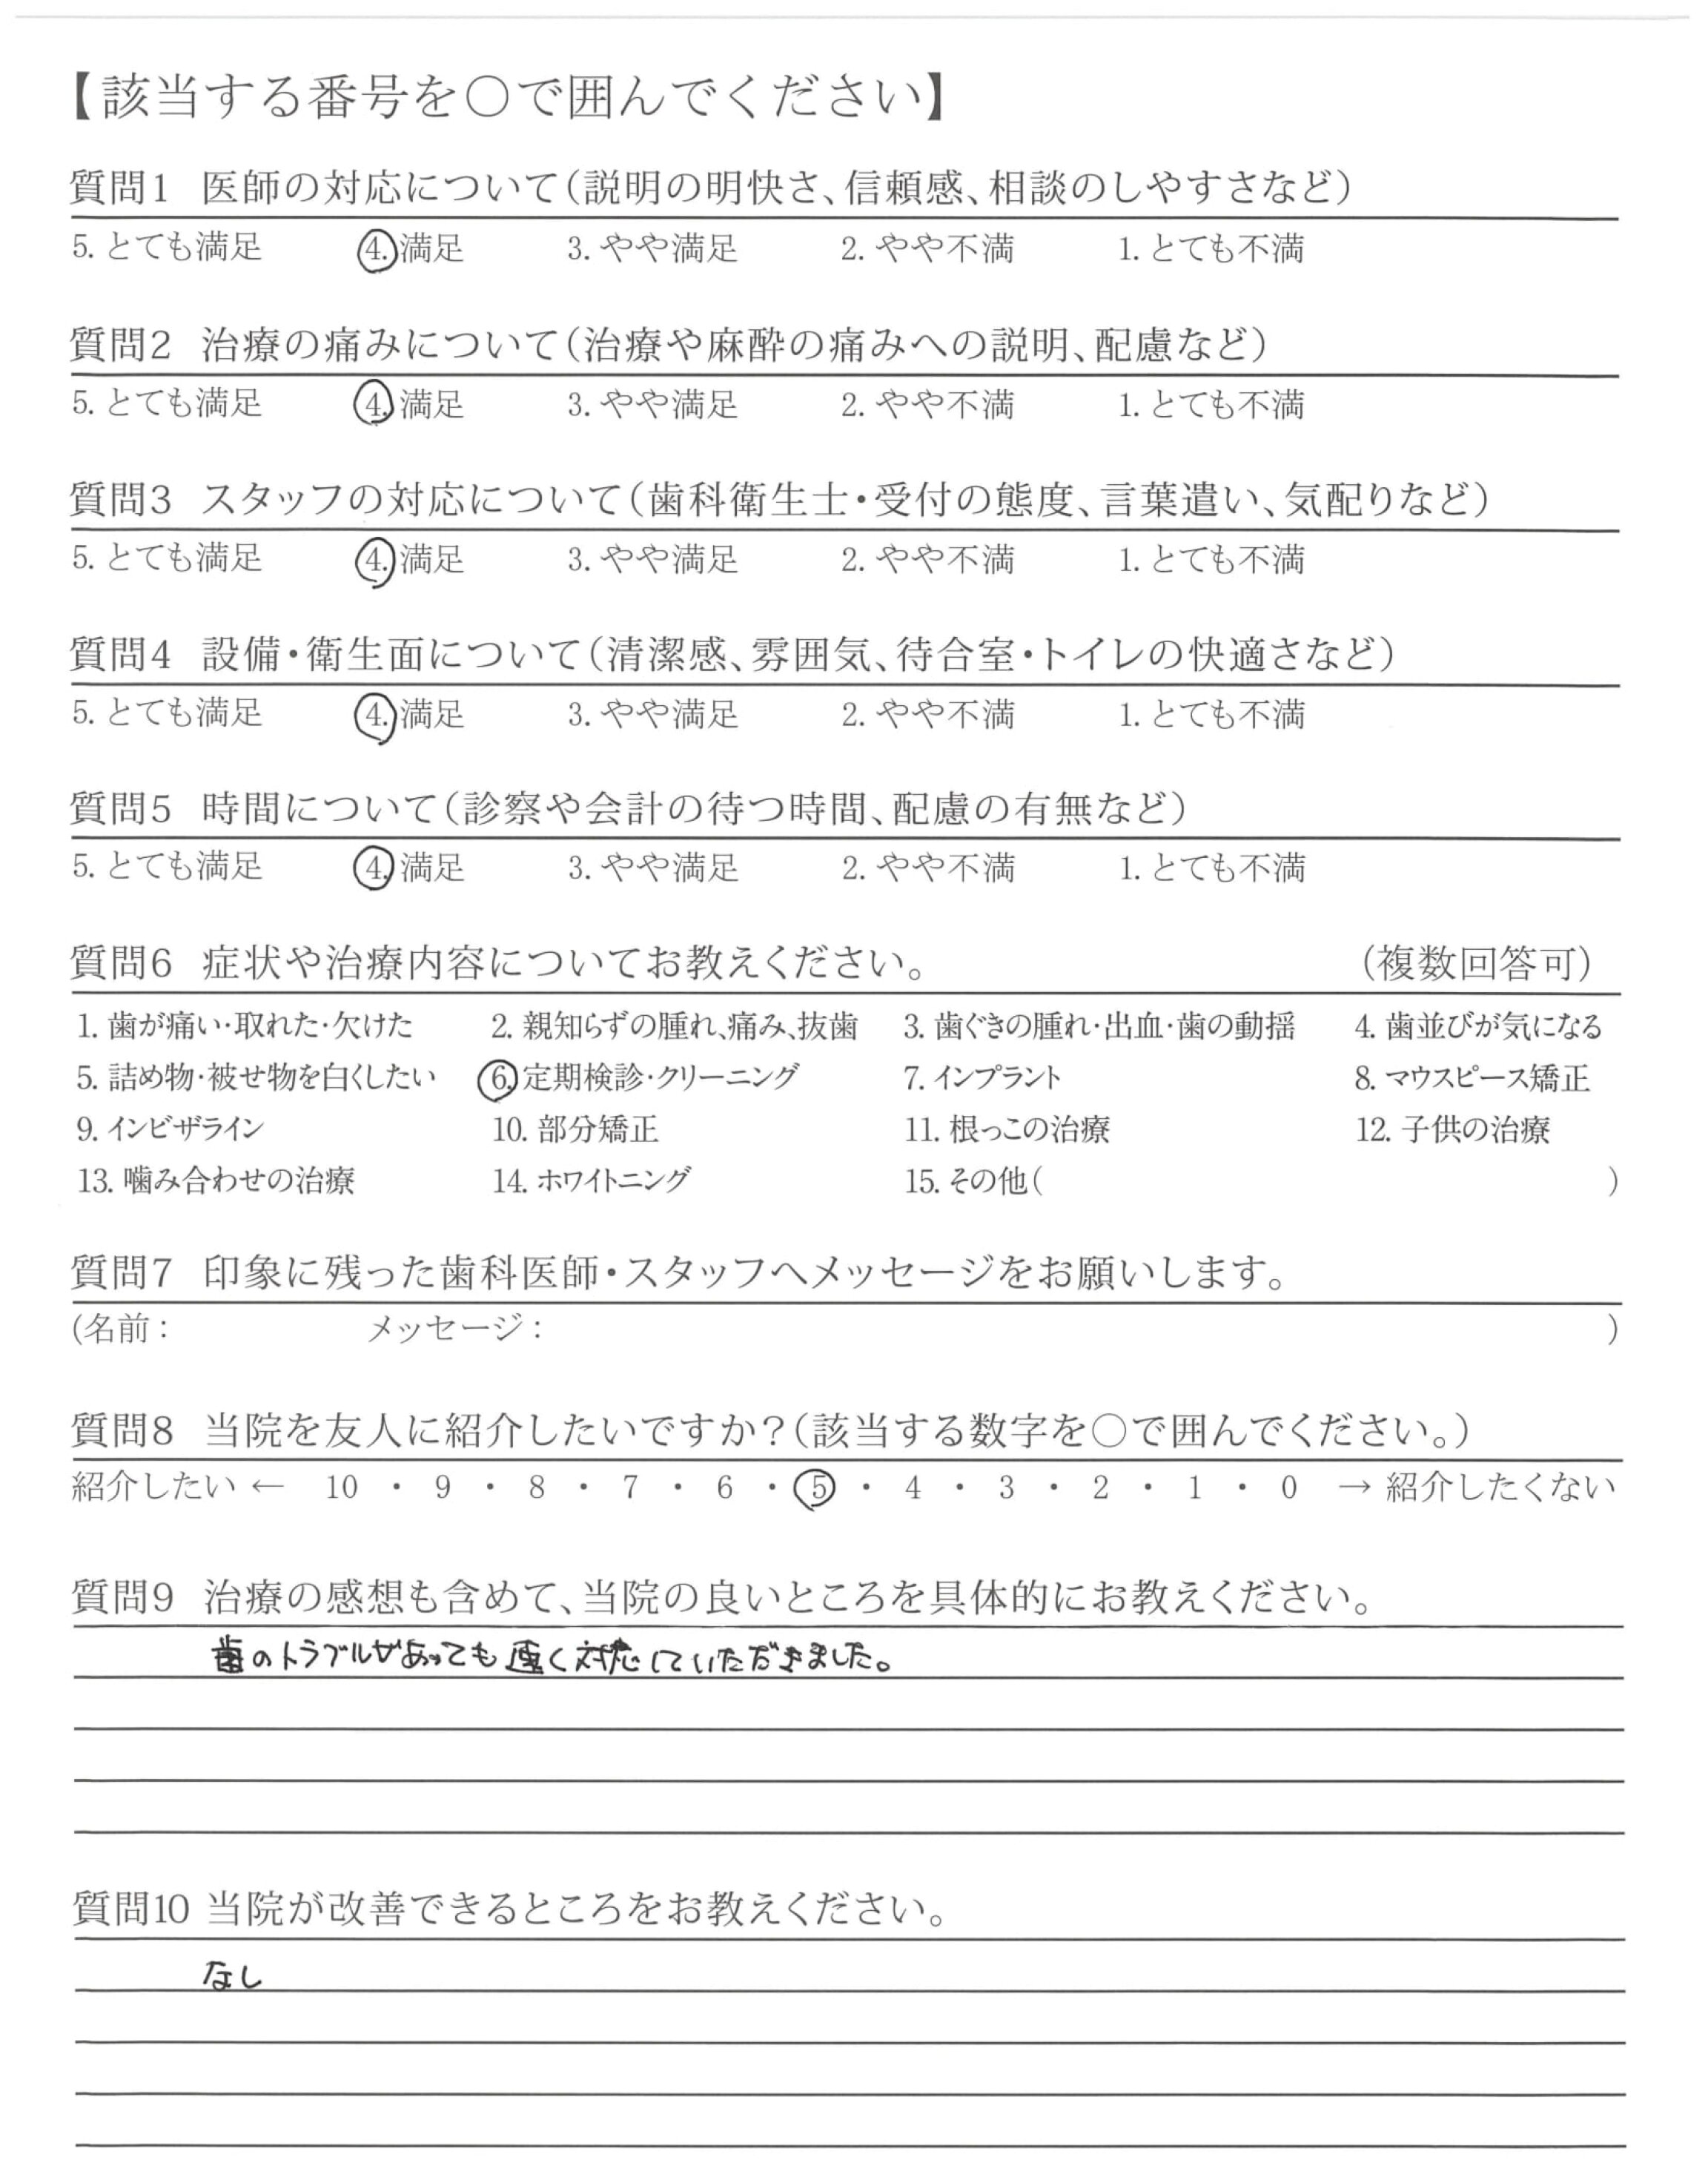 【該当する番号を○で囲んでください】
質問1 医師の対応について（説明の明快さ、信頼感、相談のしやすさなど）
5. とても満足 4. 満足 3. やや満足 2. やや不満 1. とても不満
質問2 治療の痛みについて（治療や麻酔の痛みへの説明、配慮など）
5. とても満足 4. 満足 3. やや満足 2. やや不満 1. とても不満
質問3 スタッフの対応について（歯科衛生士・受付の態度、言葉遣い、気配りなど）
5. とても満足 4. 満足 3. やや満足 2. やや不満 1. とても不満
質問4 設備・衛生面について（清潔感、雰囲気、待合室・トイレの快適さなど）
5. とても満足 4. 満足 3. やや満足 2. やや不満 1. とても不満
質問5 時間について（診察や会計の待つ時間、配慮の有無など）
5. とても満足 4. 満足 3. やや満足 2. やや不満 1. とても不満
質問6 症状や治療内容についてお教えください。 （複数回答可）
1. 歯が痛い・取れた・欠けた 2. 親知らずの腫れ、痛み、抜歯 3. 歯ぐきの腫れ・出血・歯の動揺 4. 歯並びが気になる
5. 詰め物・被せ物を白くしたい 6. 定期検診・クリーニング 7. インプラント 8. マウスピース矯正
9. インビザライン 10. 部分矯正 11. 根っこの治療 12. 子供の治療
13. 噛み合わせの治療 14. ホワイトニング 15. その他（ ）
質問7 印象に残った歯科医師・スタッフへメッセージをお願いします。
（名前： メッセージ： ）
質問8 当院を友人に紹介したいですか？（該当する数字を○で囲んでください。）
紹介したい ← 10 ・ 9 ・ 8 ・ 7 ・ 6 ・ 5 ・ 4 ・ 3 ・ 2 ・ 1 ・ 0 → 紹介したくない
質問9 治療の感想も含めて、当院の良いところを具体的にお教えください。
歯のトラブルがあっても速く対応していただきました。
質問10 当院が改善できるところをお教えください。
なし